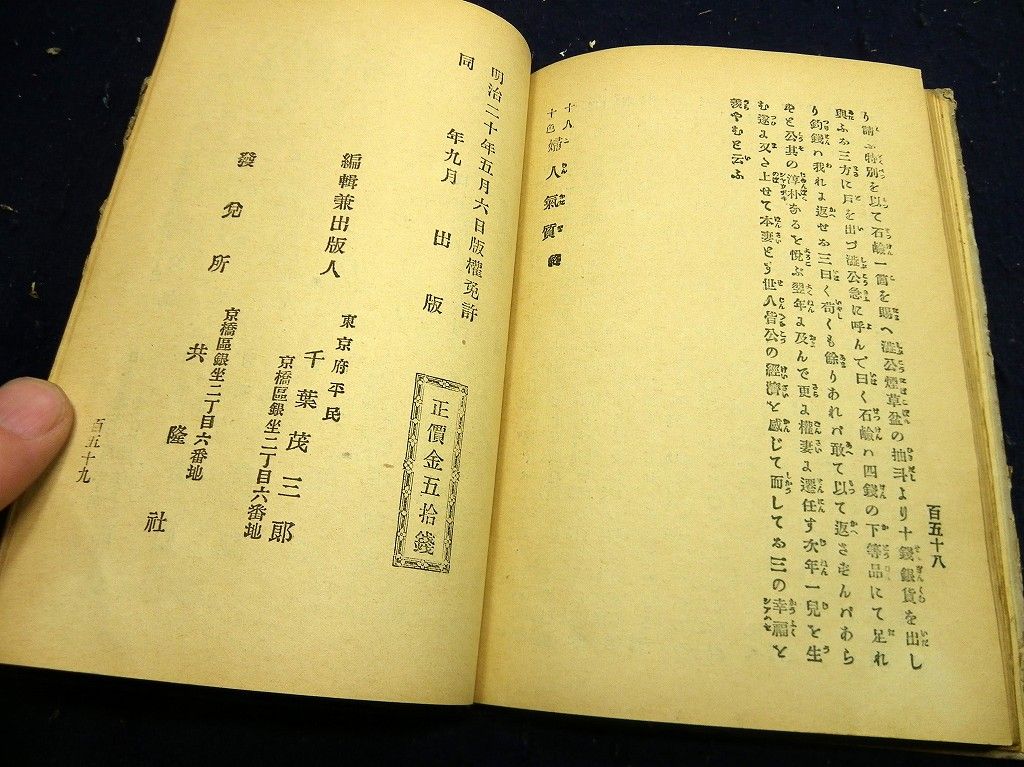 百五十八
り請ふ特別を以て石鹼一箇を賜へ澁公煙草盆の抽斗より十錢銀貨を出し
與ふお三方に戸を出づ澁公急に呼んで曰く石鹼ハ四錢の下等品にて足れ
り釣錢ハ我れに返せお三曰く苟くも餘りあれバ敢て以て返さずんバあら
ずと公其の淳朴なるを悦ぶ翌年に及んで更に權妻に遷任す次年一兒を生
む遂に又た上せて本妻とす世人皆公の經濟を感じて而してお三の幸福を
羨やむと云ふ
十人十色婦人氣質 終
明治二十年五月六日版權免許
同 年九月 出版
正價金五拾錢
東京府平民
編輯兼出版人 千葉茂三郎
京橋區銀坐二丁目六番地
京橋區銀坐二丁目六番地
發兌所 共隆社
百五十九